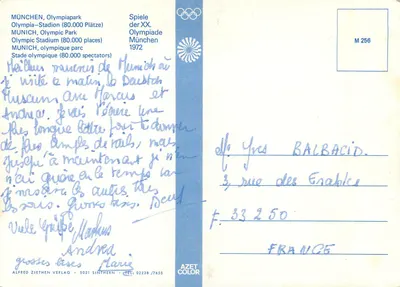 MÜNCHEN, Olympiapark
Olympia-Stadion (80.000 Plätze)
MUNICH, Olympic Park
Olympic Stadium (80.000 places)
MUNICH, olympique parc
Stade olympique (80.000 spectators)
Spiele
der XX.
Olympiade
München
1972
M 256
Meilleurs souvenirs de Munich où
j'ai visité ce matin le Deutsches
Museum avec Marcus et
Andrea. Je vais t'écrire une
plus longue lettre pour te donner
de plus amples détails mais
jusqu'à maintenant je n'en
n'ai guère eu le temps
Gros bises.
Viele Grüße Markus
Andrea
grosses bises Marie
M. Yves BALBACID.
3, rue des Erables
F. 33 250
FRANCE
ALFRED ZIETHEN VERLAG
AZET
COLOR